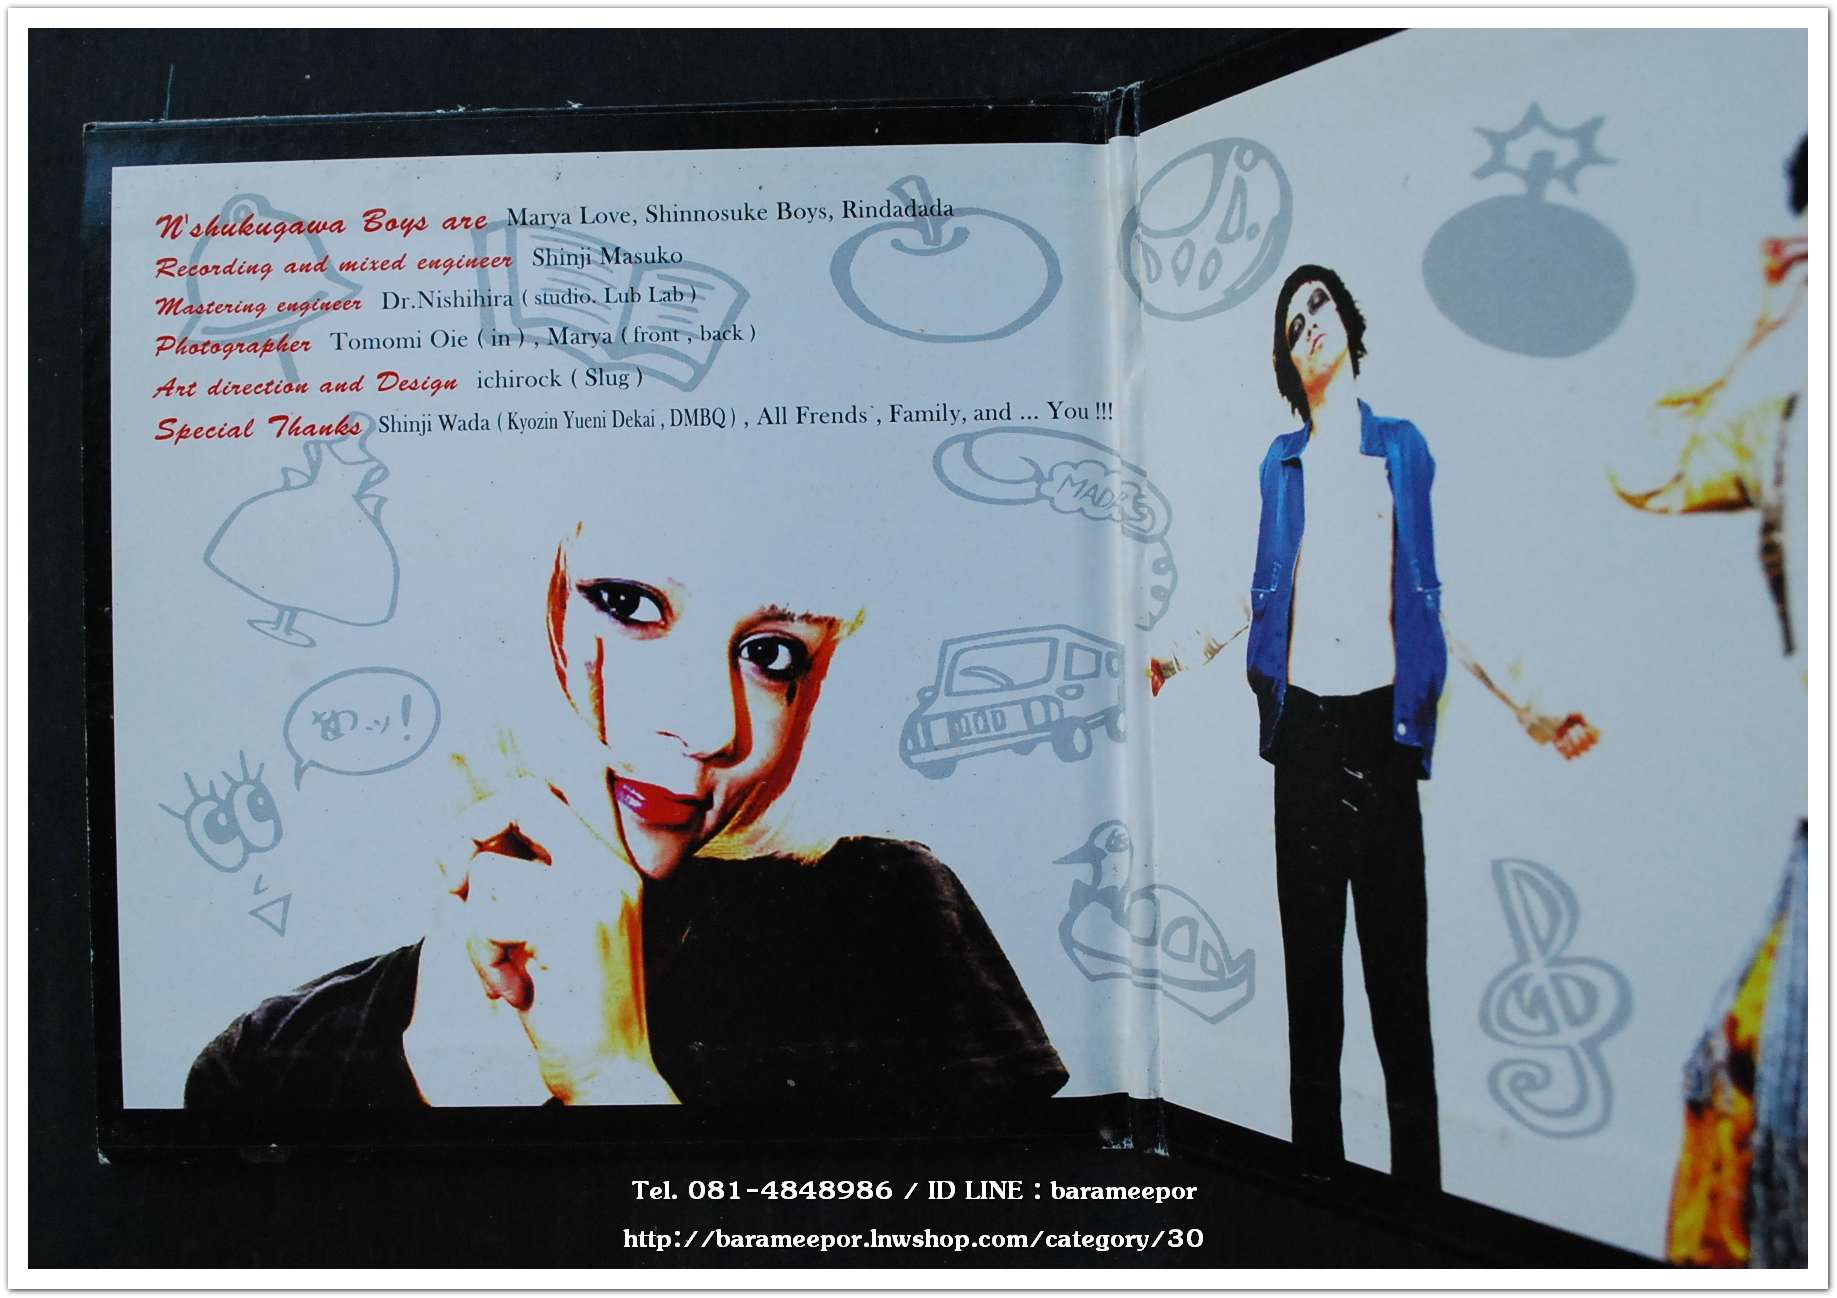 N'shukugawa Boys are Marya Love, Shinnosuke Boys, Rindadada
Recording and mixed engineer Shinji Masuko
Mastering engineer Dr.Nishihira ( studio. Lub Lab )
Photographer Tomomi Oie ( in ) , Marya ( front , back )
Art direction and Design ichirock ( Slug )
Special Thanks Shinji Wada ( Kyozin Yueni Dekai , DMBQ ) , All Frends , Family, and ... You !!!
MADRAS
Tel. 081-4848986 / ID LINE : barameepor
http://barameepor.lnwshop.com/category/30